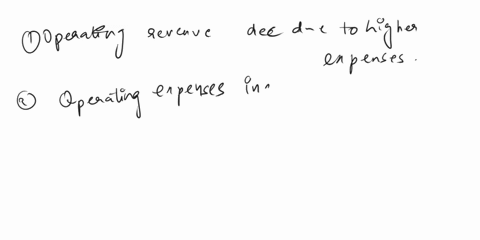 ① Operating revenue dec due to higher
expenses.
② Operating expenses in